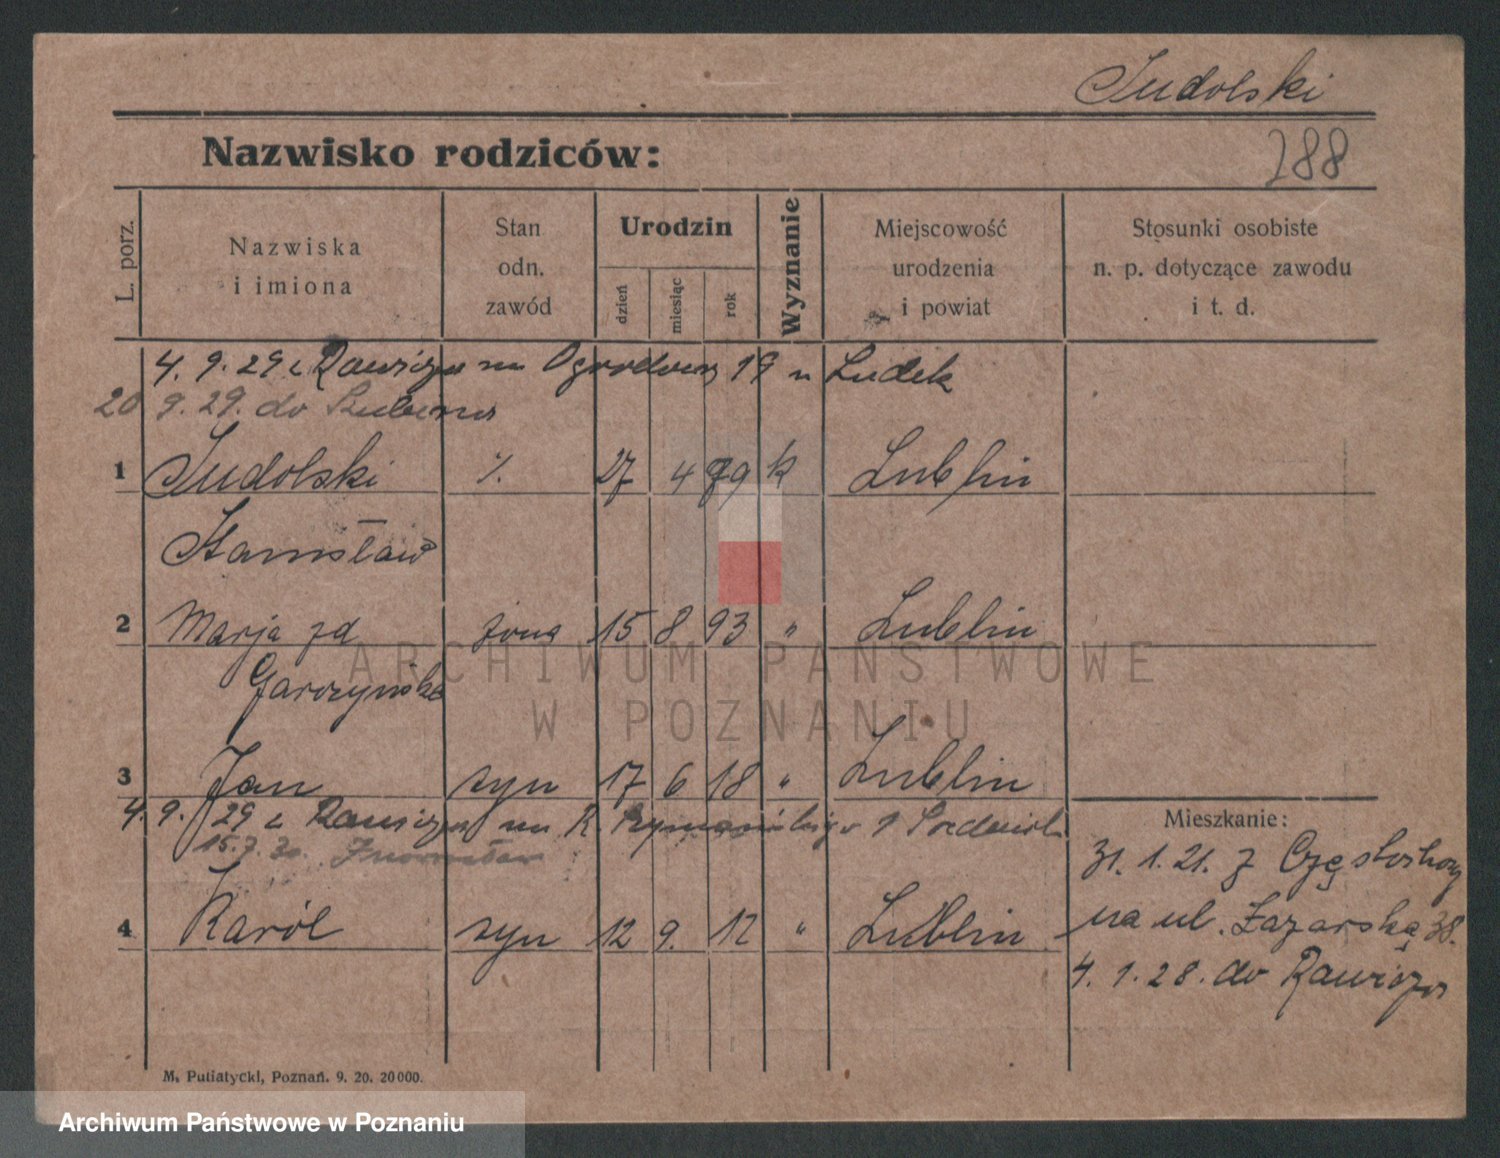 Judolski
Nazwisko rodziców:
288
L. porz.
Nazwiska
i imiona
Stan
odn.
zawód
Urodzin
dzień
miesiąc
rok
Wyznanie
Miejscowość
urodzenia
i powiat
Stosunki osobiste
n. p. dotyczące zawodu
i t. d.
4. 9. 29 z Rawicza na Ogrodowa 19 u Ludek
20 9. 29. do
1 Judolski 27 4 79 k Lublin
Stanisław
2 Marja zd żona 15 8 93 " Lublin
Garczyńska
3 Jan syn 17 6 18 " Lublin
4. 9. 29 z Rawicza na 1
15.7.30. Inowrocław
4 Karól syn 12 9. 12 " Lublin
Mieszkanie:
31. 1. 21. z Częstochowy
na ul. Łazarską 38.
4. 1. 28. do Rawicza
M. Putiatycki, Poznań. 9. 20. 20000.
ARCHIWUM PAŃSTWOWE
W POZNANIU
Archiwum Państwowe w Poznaniu